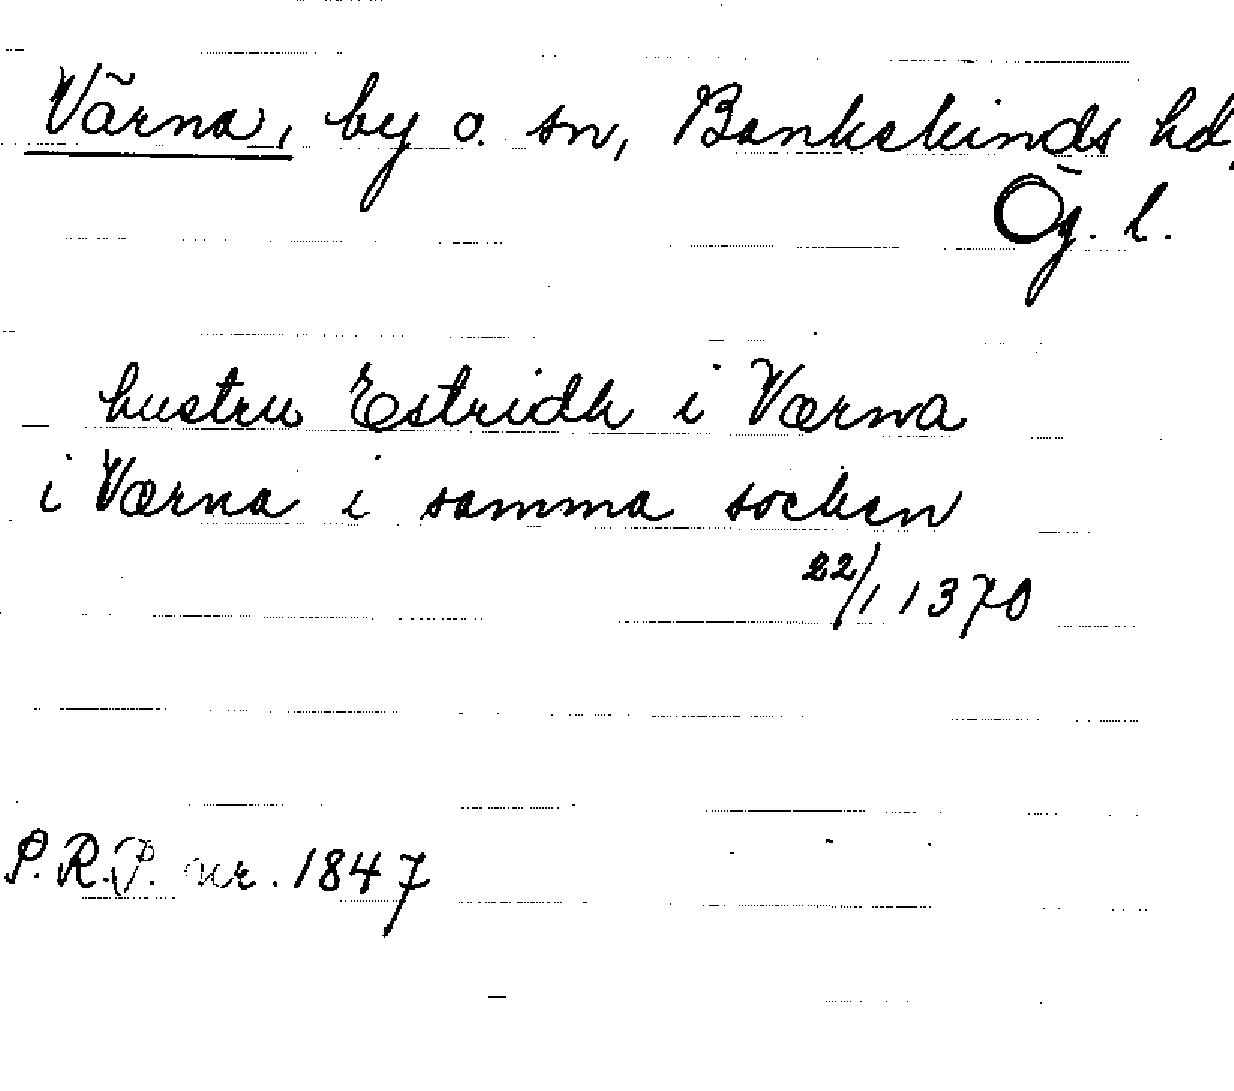 Värna, by o. sn, Bankekinds hd,
Ög. l.
hustru Estridh i Værna
i Værna i samma socken
22/1 1370
P.R.P. nr. 1847